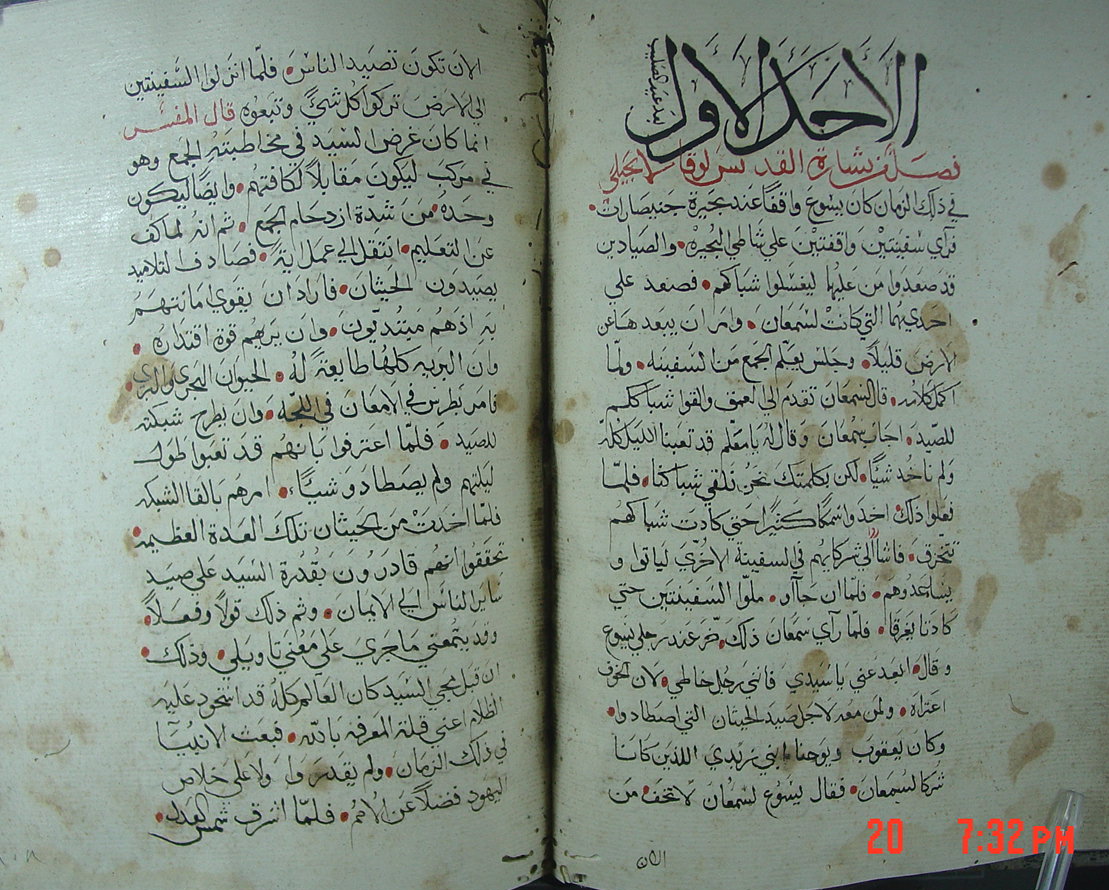 الاحد الاول
بعد عيد الصليب
فصل من بشارة القديس لوقا الانجيلي
في ذلك الزمان كان يسوع واقفًا عند بحيرة جنيصارات •
فرآي سفينتين واقفتين علي شاطي البحيرة • والصيادين
قد صعدوا من عليها ليغسلوا شباكهم • فصعد علي
احدي هما التي كانت لسمعان • وامر ان يبعدها عن
الارض قليلاً • وجلس يعلّم الجمع من السفينه • ولما
اكمل كلامه • قال لسمعان تقدم الي العمق والقوا شباككم
للصيد • اجاب سمعان وقال له يا معلم قد تعبنا الليل كله
ولم ناخد شيًّا • لكن بكلمتك نحن نلقي شباكنا • فلمّا
فعلوا ذلك • اخدوا سمكًا كثيرًا حتي كادت شباكهم
تتخرق • فاشاروا الي شركايهم في السفينة الاخري لياتوا و
يساعدوهم • فلما ان جآاو • ملوا السفينتين حتي
كادتا يغرقا • فلما رآي سمعان ذلك • خر عند رجلي يسوع
وقال • ابعد عني يا سيدي فانني رجل خاطي • لان الخوف
اعتراه • ولمن معه لاجل صيد الحيتان التي اصطادوا •
وكان يعقوب ويوحنا ابني زبدي اللدين كانا
شركا لسمعان • فقال يسوع لسمعان لا تخف • من
الان
الان تكون تصيد الناس • فلمّا انزلوا السفينتين
الي الارض تركوا كل شيً وتبعوه قال المفسر
انما كان غرض السيد في مخاطبته الجمع وهو
في مركب ليكون مقابلاً لكافتهم • وايضًا ليكون
وحده • من شدّة ازدحام الجمع • ثم انه لما كف
عن التعليم • انتقل الي عمل اية • فصادف التلاميد
يصيدون الحيتان • فاراد ان يقوي امانتهم
به اذ هم مبتديون • وان يريهم قوة اقتداره •
وان البريه كلها طايعةً له • الحيوان البحري والبري
فامر بطرس في الامعان في اللجّه • وان يطرح شبكته
للصيد • فلمّا اعترفوا بانهم قد تعبوا طول
ليلتهم ولم يصطادو شيًّا • امرهم بالقا الشبكه
فلمّا اخدت من الحيتان تلك العدة العظيمه •
تحققوا انهم قادرون بقدرة السيد علي صيد
ساير الناس الي الايمان • وثم ذلك قولاً وفعلاً •
وقد يتمعني ما جري علي معني تاويلي • وذلك •
ان قبل مجي السيد كان العالم كله قد استحود عليه
الظلام اعني قلة المعرفه بالله • فبعث الانبيآ
في ذلك الزمان • ولم يقدروا ولا علي خلاص
اليهود فضلاً عن الامم • فلمّا اشرق شمس العدل •
20 7:32 PM